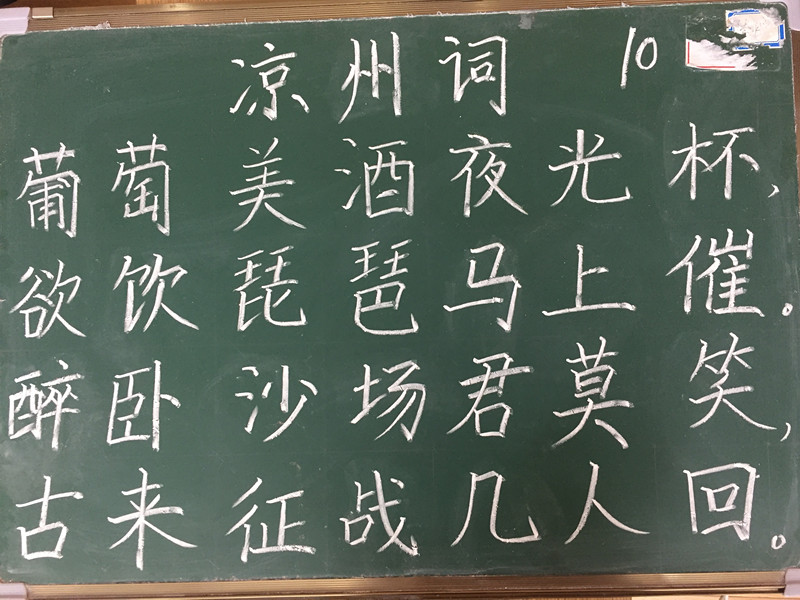 凉州词 10
葡萄美酒夜光杯,
欲饮琵琶马上催。
醉卧沙场君莫笑,
古来征战几人回。